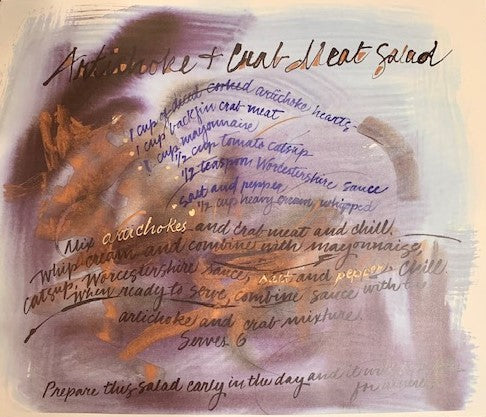 Artichoke + Crab Meat Salad
1 cup of diced cooked artichoke hearts
1 cup backfin crab meat
1 cup mayonnaise
1/2 cup tomato catsup
1/2 teaspoon Worcestershire sauce
salt and pepper
1/2 cup heavy cream, whipped
Mix artichokes and crab meat and chill.
Whip cream and combine with mayonnaise,
catsup, Worcestershire sauce, salt and pepper. Chill.
When ready to serve, combine sauce with
artichoke and crab mixture.
Serves 6
Prepare this salad early in the day and it will
for